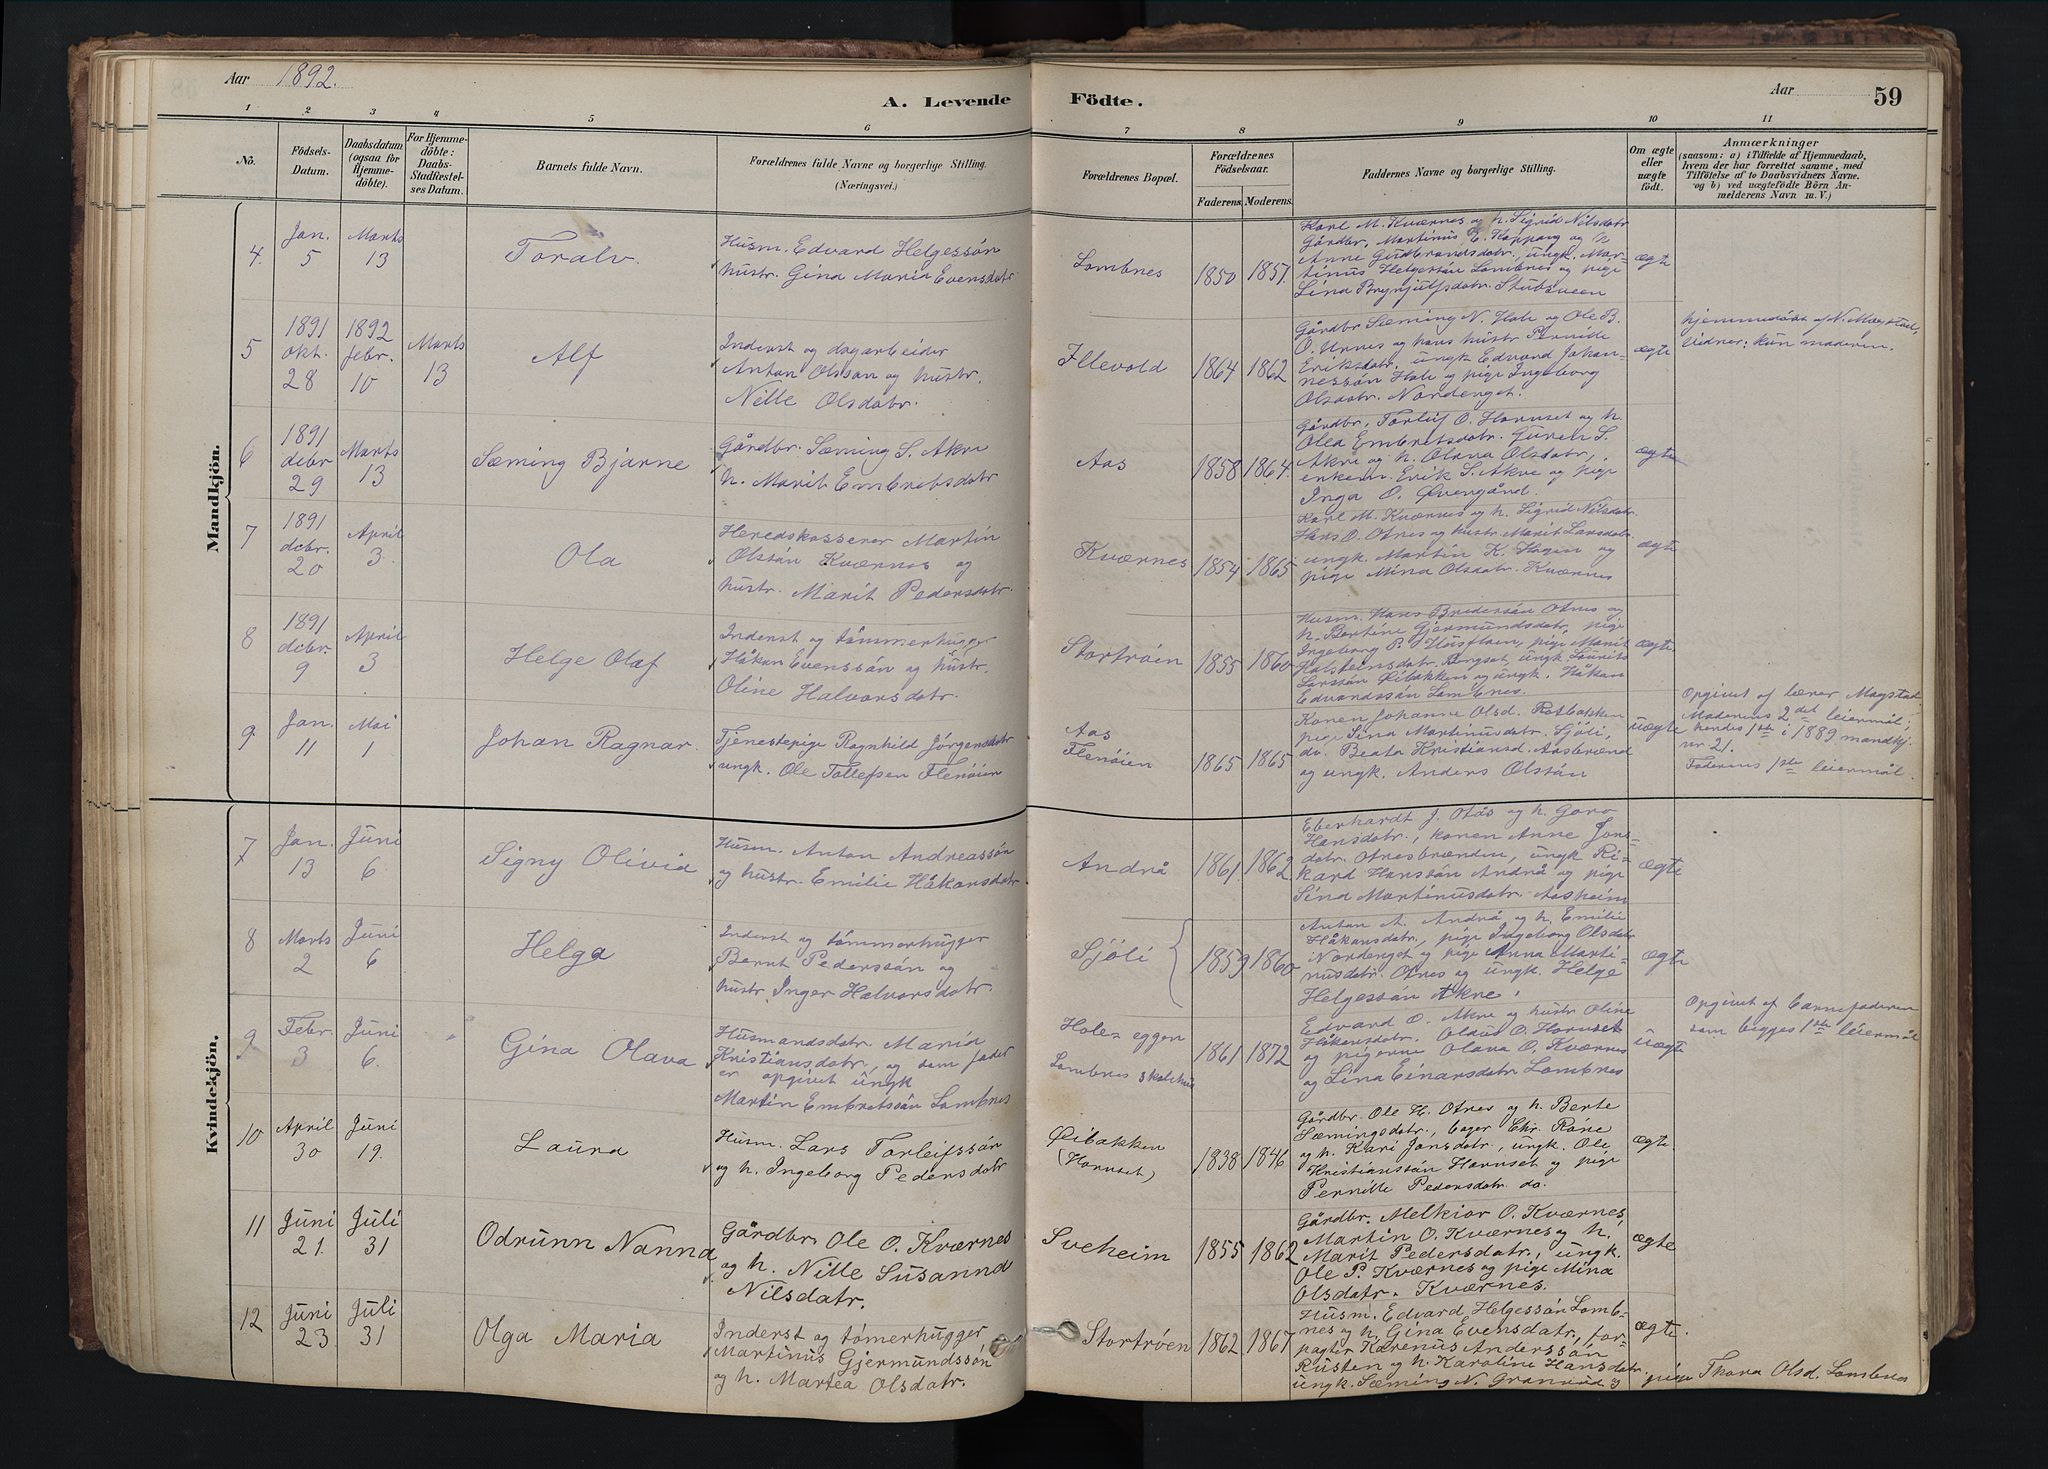 Aar 1892.
A. Levende
Födte.
Aar
59
1 2 3 4 5 6 7 8 9 10 11
No.
Födsels-
Datum.
Daabsdatum
(ogsaa for
Hjemme-
döbte).
For Hjemme-
döbte:
Daabs-
Stadfæstel-
ses Datum.
Barnets fulde Navn.
Forældrenes fulde Navne og borgerlige Stilling.
(Næringsvei.)
Forældrenes Bopæl.
Forældrenes
Födselsaar.
Faderens. Moderens.
Faddernes Navne og borgerlige Stilling.
Om ægte
eller
uægte
födt.
Anmærkninger
(saasom: a) i Tilfælde af Hjemmedaab,
hvem der har forrettet samme, med
Tilföielse af to Daabsvidners Navne,
og b) ved uægtefödte Börn An-
melderens Navn m. V.)
Mandkjön.
4.
Jan.
5
Marts
13
Toralv.
Husm. Edvard Helgessön
hustr. Gina Maria Evensdatr.
Lombnes
1850
1851.
Karl M. Kværnes og h. Sigrid Nilsdatr.
Gårdbr. Martinus E. Koppang og h
Anne Gudbrandsdatr., ungk. Mar-
tinus Helgessön Lombnes og pige
Lina Brynjulfsdatr. Stubsveen
ægte
5
1891
Okt.
28
1892
febr.
10
Marts
13
Alf
Inderst og dagarbeider
Anton Olsson og hustr.
Nille Olsdatr.
Illevold
1864
1862
Gårdbr Sæming N. Hole og Ole B.
O. Urnes og hans hustr Pernille
Eriksdatr. ungk Edvard Johan-
nessön Hole og pige Ingeborg
Olsdatr. Nordenget.
ægte
hjemmedöbt af N. Magstad,
vidner: kun moderen.
6
1891
debr
29
Marts
13
Sæming Bjarne
Gårdbr. Sæming S. Akre
h. Marit Embretsdatr
Aas
1858
1864.
Gårdbr. Torleif O. Hornset og h.
Olea Embretsdatr. Guren S.
Akre og h. Olava Olsdatr,
enkem. Erik S. Akre og pige
Inga O. Övengånd.
ægte
7
1891
debr.
20
April
3.
Ola
Heredskasserer Martin
Olssön Kværnes og
hustr. Marit Pedersdatr.
Kværnes
1854
1865
Karl M. Kværnes og h. Sigrid Nilsdatr.
Hans O. Otnes og hustr Marit Larsdatr.
ungk. Martin K. Hagen og
pige Mina Olsdatr. Kværnes
ægte
8
1891
debr.
9
April
3
Helge Olaf
Inderst og tömmerhugger
Håkan Evenssön og hustr.
Oline Halvorsdatr.
Stortröien
1855
1860
Husm. Hans Bredessön Otnes og
h. Bertine Gjermundsdatr, pige
Ingeborg P. Husfloen, pige Marit
Halsteinsdatr. Bergset, ungk. Laurits
Larssön Öibakken og ungk. Håkan
Edvardssön Lombnes.
ægte
9.
Jan.
11
Mai
1
Johan Ragnar.
Tjenestepige Ragnhild Jörgensdatr
ungk. Ole Tollefsen Flenöien
Aas
Flenöien
1865
1865
Konen Johanne Olsd. Rotbakken
pige Lina Martinusdatr. Sjöli,
do. Beata Kristiansd. Aasbrænd
og ungk. Anders Olssön
uægte
Opgivet af lærer Magstad.
Moderens 2det leiermål;
hendes 1ste i 1889 mandkj.
nr 21.
Faderens 1ste leiermål.
Kvindekjön.
7
Jan.
13
Juni
6.
Signy Olivia
Husm. Anton Andreassön
og hustr. Emilie Håkansdatr
Andrå
1861.
1862
Eberhardt J. Otås og h. Goro
Hansdatr., konen Anne Jons-
datr. Otnesbrænden, ungk Ri-
kard Hanssön Andrå og pige
Sina Martinusdatr. Aasheim
ægte
8
Marts
2
Juni
6
Helga
Inderst og tömmerhugger
Bernt Pederssön og
hustr. Inger Halvorsdatr.
Sjöli
1859
1860
Anton A. Andrå og h. Emilie
Håkansdatr., pige Ingeborg Olsdatr
Nordenget og pige Anna Marti-
nusdatr. Otnes og ungk. Helge
Helgessön Akre.
ægte
9
Febr.
3
Juni
6.
Gina Olava
Husmandsdatr. Maria
Kristiansdatr, og som fader
er opgivet ungk
Martin Embretssön Lombnes
Holeseggen
Lombnes skolehus
1861
1872
Edvard O. Akre og hustr Oline
Håkansdatr. Olaus O. Hornset
og pigerne Olava O. Kværnes
og Lina Einarsdatr Lombnes
uægte
Opgivet af barnefaderen
som begges 1ste leiermål
10
April
30
Juni
19.
Laura
Husm. Lars Torleifssön
og h. Ingeborg Pedersdatr
Öibakken
(Hornset)
1838
1846
Gårdbr. Ole H. Otnes og h. Berte
Sæmingsdatr, bager Chr. Rane
og h. Kari Jonsdatr., ungk. Ole
Kristianssön Hornset og pige
Pernille Pedersdatr. do.
ægte.
11
Juni
21.
Juli
31
Odrunn Nanna
Gårdbr. Ole O. Kværnes
og h. Nille Susanna
Nilsdatr.
Sveheim
1855
1862
Gårdbr. Melkior O. Kværnes,
Martin O. Kværnes og h.
Marit Pedersdatr., ungk.
Ole P. Kværnes og pige Mina
Olsdatr. Kværnes.
ægte
12
Juni
23.
Juli
31
Olga Maria
Inderst og tömerhugger
Martinus Gjermundssön
og h. Martea Olsdatr.
Stortröen
1862
1867
Husm. Edvard Helgessön Lomb-
nes og h. Gina Evensdatr., for-
pagter Karenus Anderssön
Rusten og h. Karoline Hansdatr,
ungk. Sæming N. Granrud og
pige Thora Olsd. Lombnes
ægte.